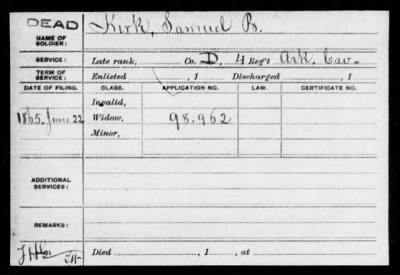 DEAD
NAME OF SOLDIER: Kirk, Samuel B.
SERVICE: Late rank, Co. D, 4 Reg't Ark. Cav.
TERM OF SERVICE: Enlisted , 1 Discharged , 1
DATE OF FILING. CLASS. APPLICATION NO. LAW. CERTIFICATE NO.
Invalid,
1865, June 22 Widow, 98.962
Minor,
ADDITIONAL SERVICES:
REMARKS:
Died , 1 , at